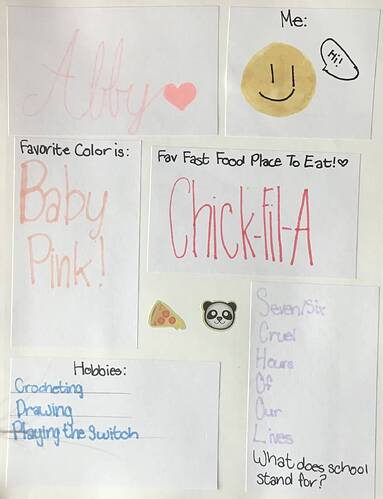 Abby
Me:
Hi!
Favorite Color is:
Baby
Pink!
Fav Fast Food Place To Eat!
Chick-fil-A
Hobbies:
Crocheting
Drawing
Playing the Switch
Seven/Six
Cruel
Hours
Of
Our
Lives
What does school
stand for?